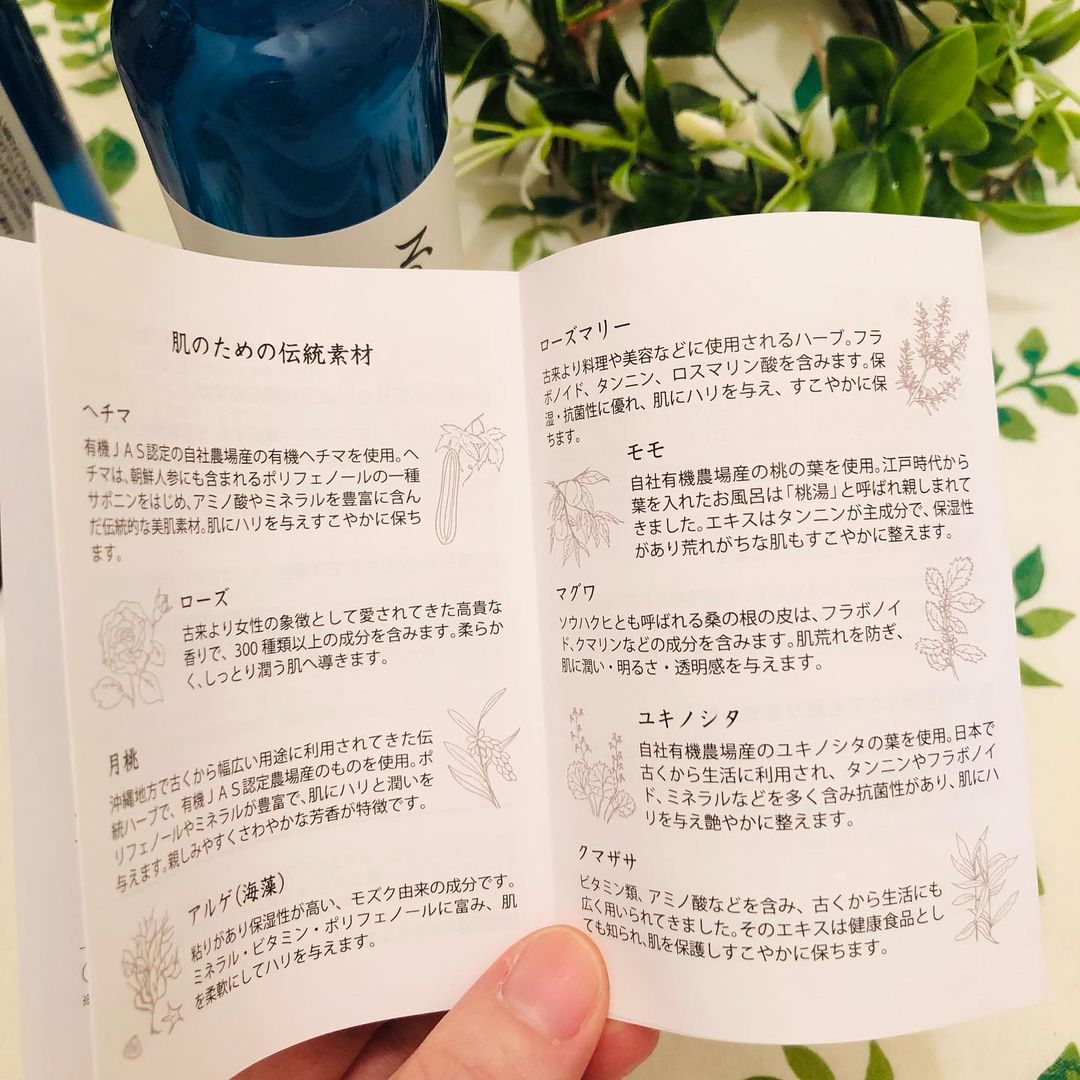 肌のための伝統素材
ヘチマ
有機JAS認定の自社農場産の有機ヘチマを使用。ヘ
チマは、朝鮮人参にも含まれるポリフェノールの一種
サポニンをはじめ、アミノ酸やミネラルを豊富に含ん
だ伝統的な美肌素材。肌にハリを与えすこやかに保ち
ます。
ローズ
古来より女性の象徴として愛されてきた高貴な
香りで、300種類以上の成分を含みます。柔らか
く、しっとり潤う肌へ導きます。
月桃
沖縄地方で古くから幅広い用途に利用されてきた伝
統ハーブで、有機JAS認定農場産のものを使用。ポ
リフェノールやミネラルが豊富で、肌にハリと潤いを
与えます。親しみやすくさわやかな芳香が特徴です。
アルゲ(海藻)
粘りがあり保湿性が高い、モズク由来の成分です。
ミネラル・ビタミン・ポリフェノールに富み、肌
を柔軟にしてハリを与えます。
ローズマリー
古来より料理や美容などに使用されるハーブ。フラ
ボノイド、タンニン、ロスマリン酸を含みます。保
湿・抗菌性に優れ、肌にハリを与え、すこやかに保
ちます。
モモ
自社有機農場産の桃の葉を使用。江戸時代から
葉を入れたお風呂は「桃湯」と呼ばれ親しまれて
きました。エキスはタンニンが主成分で、保湿性
があり荒れがちな肌もすこやかに整えます。
マグワ
ソウハクヒとも呼ばれる桑の根の皮は、フラボノイ
ド、クマリンなどの成分を含みます。肌荒れを防ぎ、
肌に潤い・明るさ・透明感を与えます。
ユキノシタ
自社有機農場産のユキノシタの葉を使用。日本で
古くから生活に利用され、タンニンやフラボノイ
ド、ミネラルなどを多く含み抗菌性があり、肌にハ
リを与え艶やかに整えます。
クマザサ
ビタミン類、アミノ酸などを含み、古くから生活にも
広く用いられてきました。そのエキスは健康食品とし
ても知られ、肌を保護しすこやかに保ちます。